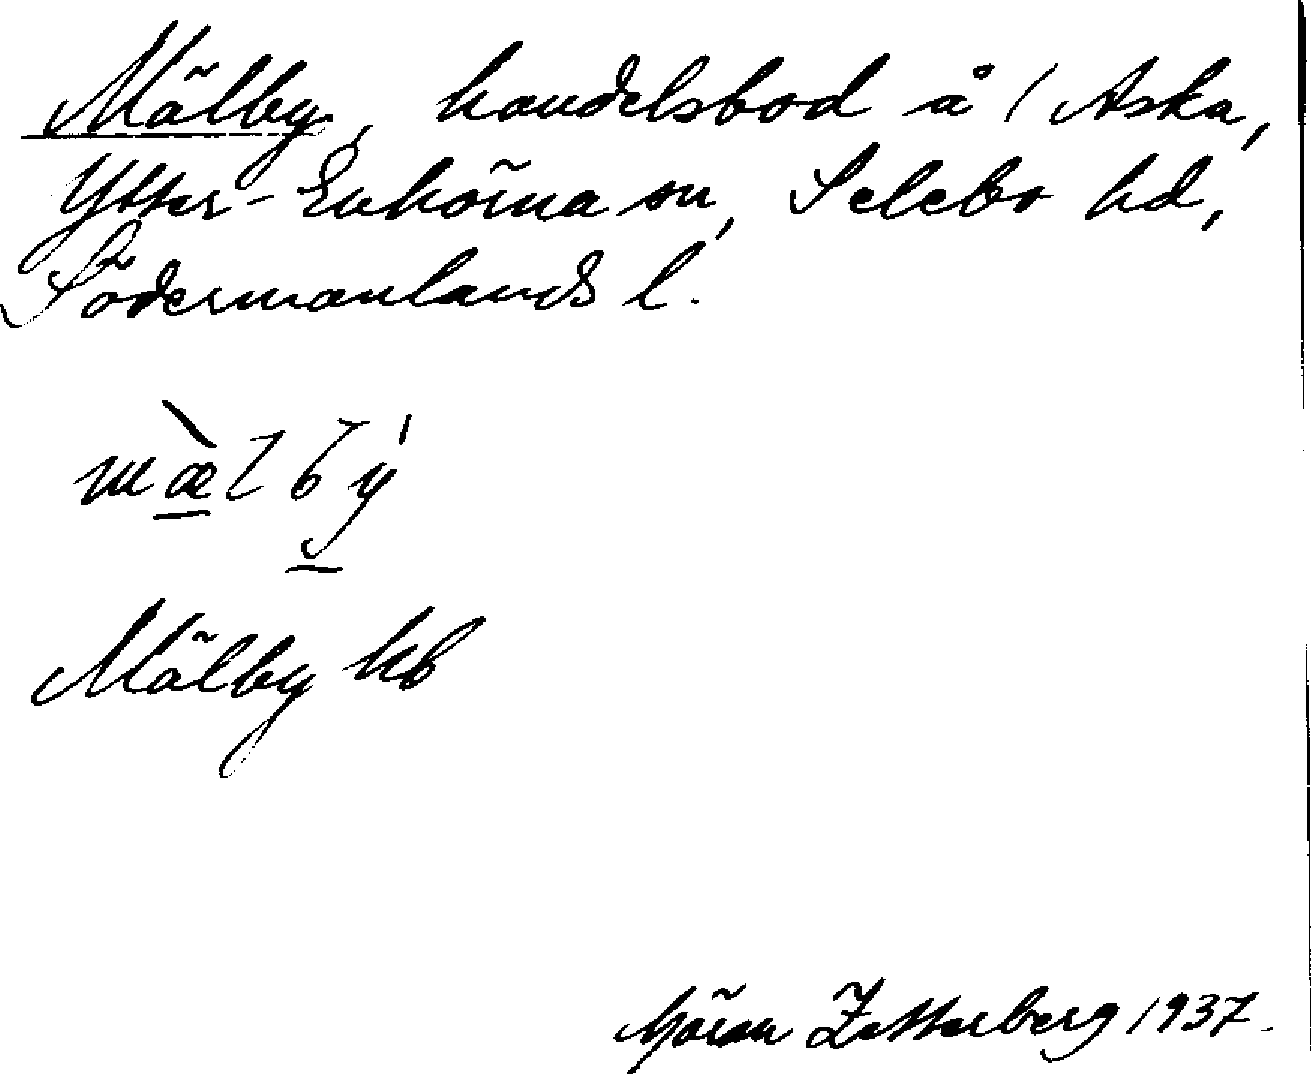 Mälby, handelsbod å 1 Aska,
Ytter-Enhörna sn, Selebo hd,
Södermanlands l.
mæ̀lby
Mälby hb
Göran Zetterberg 1937.